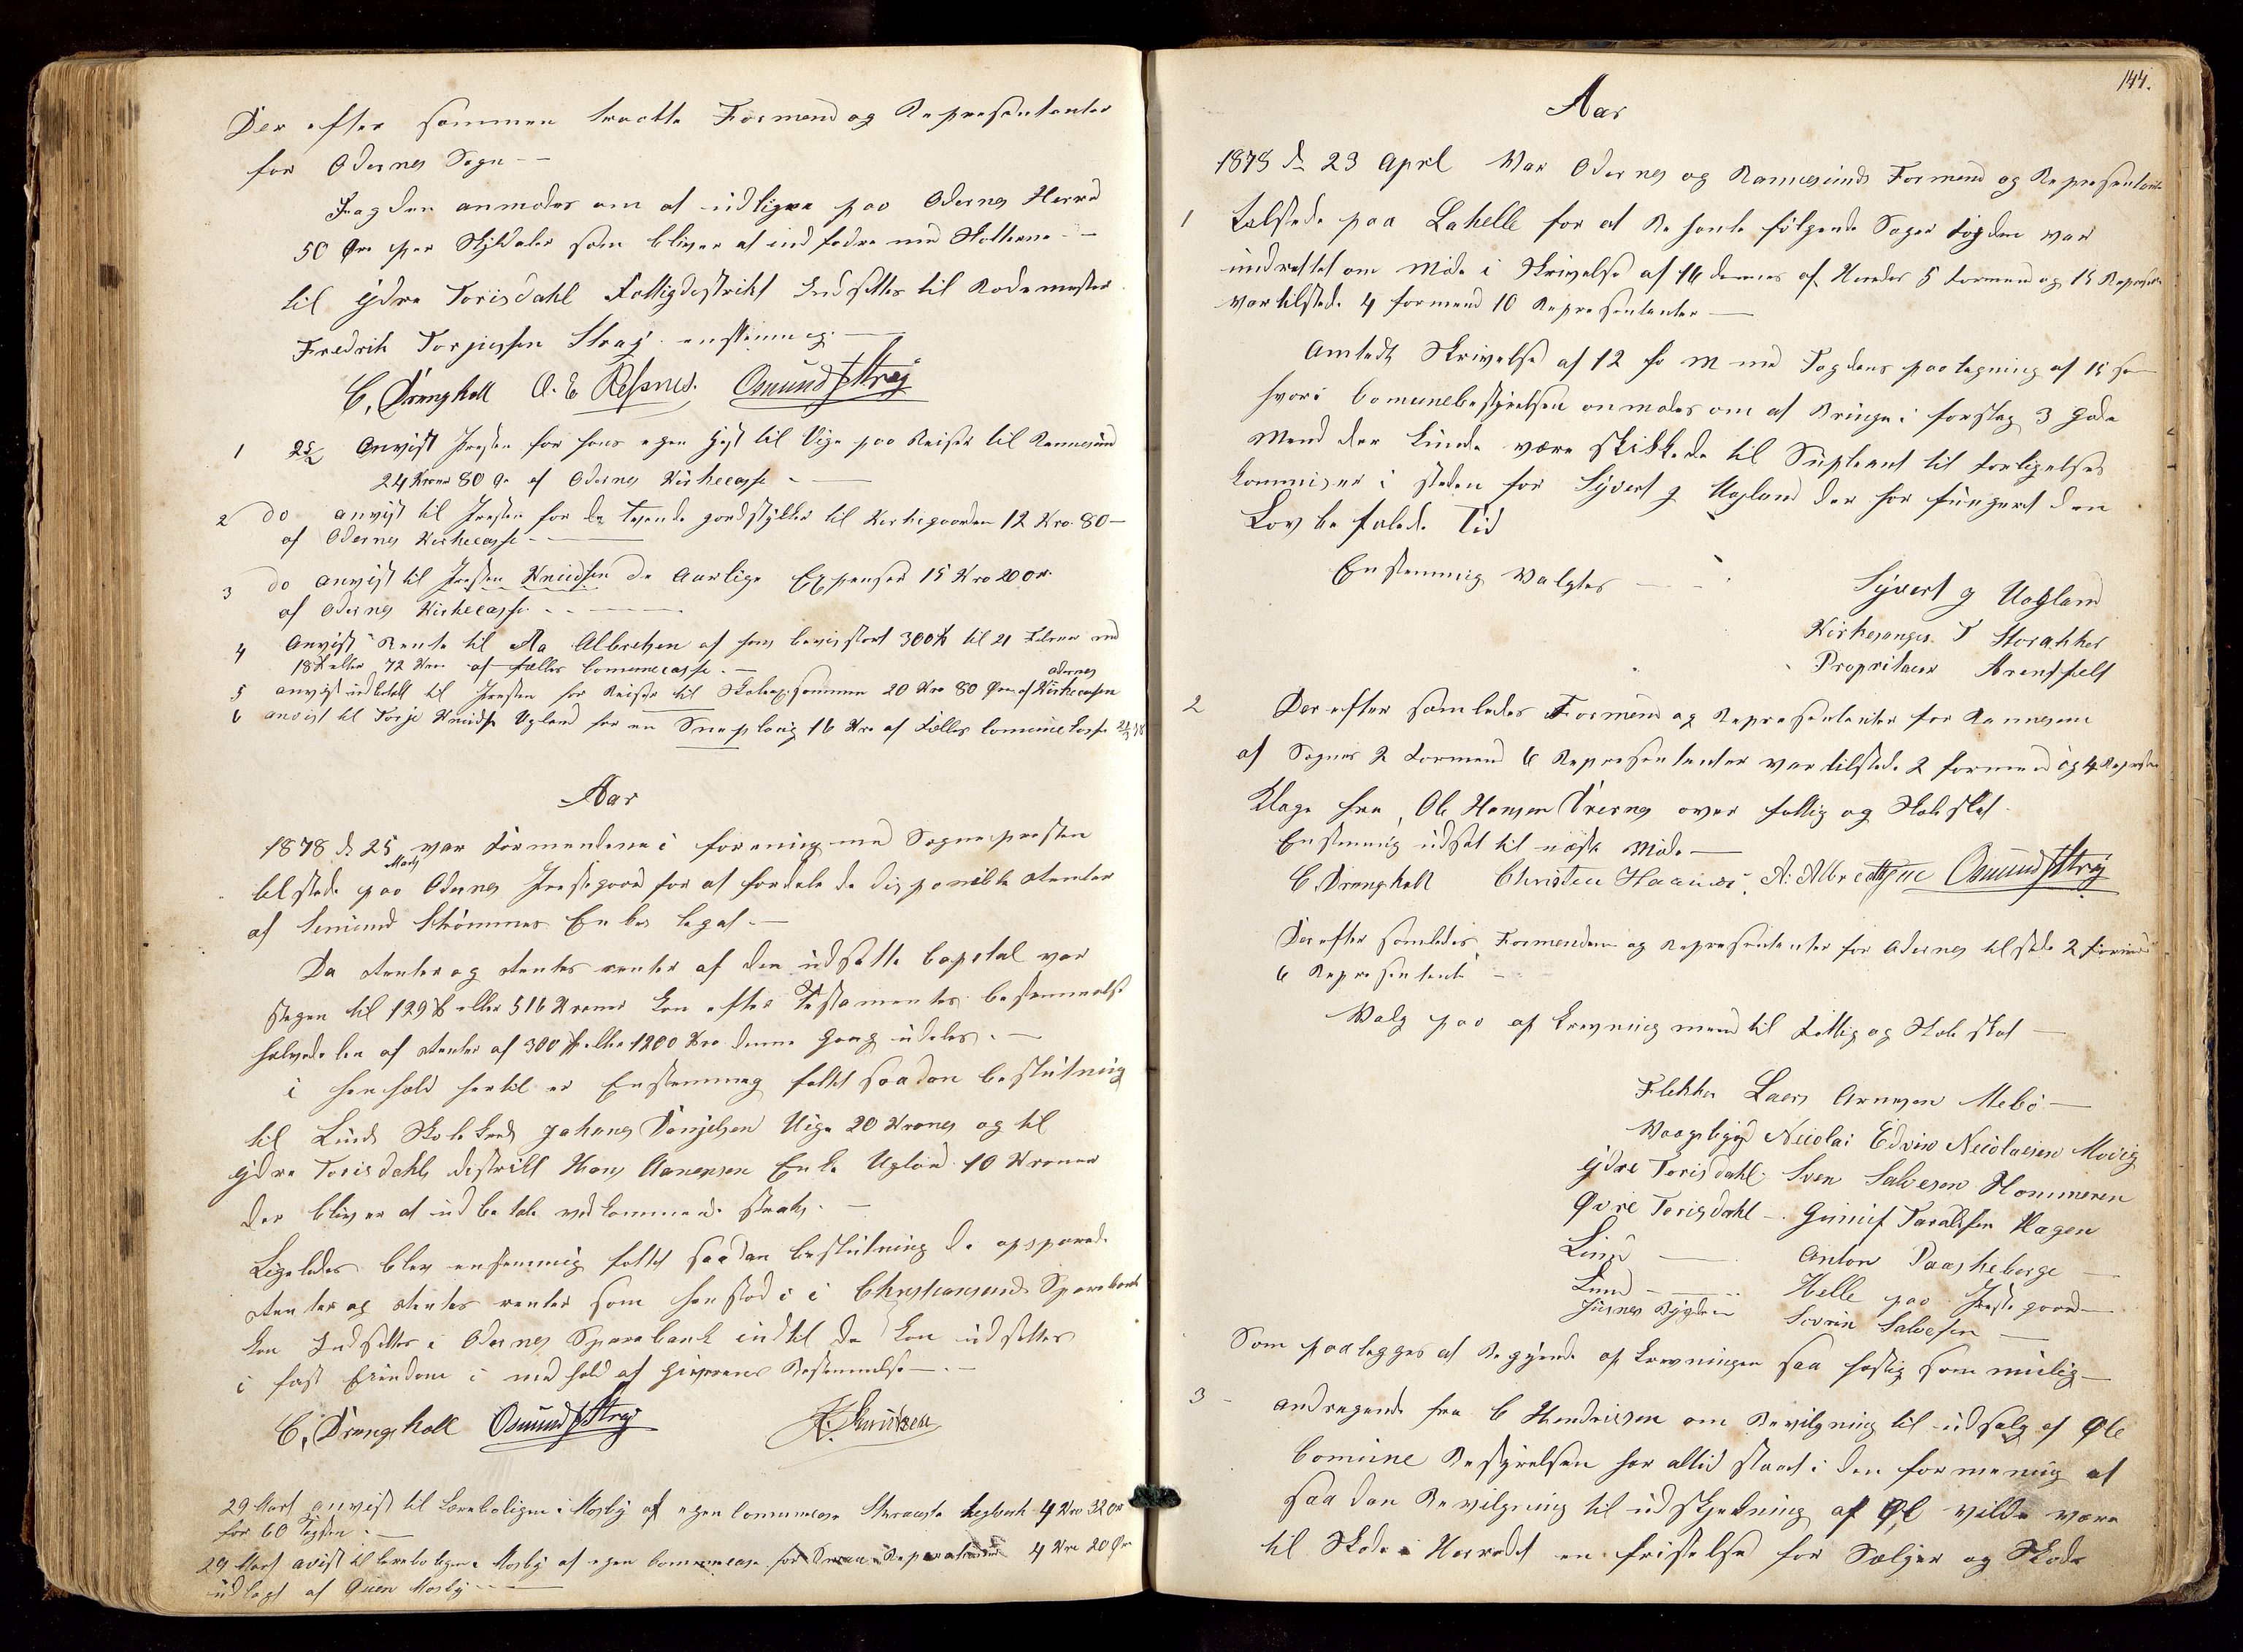 Der efter sammen traadte Formend og Repræsentanter
for Odernes Sogn --
Fogden anmodes om at udligne paa Odernes Herred
50 Øre per Skjldaler som bliver at ind fodre med Skatterne --
til ijdre Torisdahl Fattigdistrikt Indsettes til Rodemester
Fredrik Torjussen Straj enstemmeg. —
C. Drangholt O. E. Refsnes. Osmund J Straj
1 25/2 Anvist Presten for hans egen Hest til Vige paa Reiser til Rannesund
24 Kroner 80 Ør af Odernes Kirkecasse -
2 do anvist til Presten for de tvende jordstykker til Kirkegaarden 12 Kro. 80 —
af Odernes Kirkecasse - —
3 do anvist til Presten Knudsen de Aarlige Expenser 15 Kro 20 Ør.
af Odernes Kirkecasse - - —
4 Anvist Rente til Aa Albretsen af hans bevis stort 300 til 21 Februar med
18 eller 72 Kro. af fælles Comunecasse. —
5 anvist udbetalt til Presten for Reiser til Skolecommisionen 20 Kro 80 Øre af Odernes Kirkecassen
6 anvist til Torje Knuds Ugland for en Sneploug 16 Kro af Fælles Comune Kasse
Aar
1878 d: 25 Marts var Formendene i forening med Sognepresten
tilstede paa Odernes Prestegaard for at fordele de disponible Renter
af Simund Strømmes Enkes legat. —
Da Renter og Rentes renter af den udsatte Capital var
stegen til 129 eller 516 Kroner kan efter Testamentes bestemmelse
halvedelen af Renter af 300 eller 1200 Kro denne Gang udeles. —
i henhold hertil er Enstemmeg fattet saadan beslutning
til Lunds Skolekreds Johanes Danjelsen Vige 20 Kroner og til
ijdre Torisdahls distrikt Hans Aanensen Enke Ugland 10 Kroner
der bliver at udbetale vedkommende straks. —
Ligeledes blev enstemmig fattet saadan beslutning de opsparede
Renter og Rentes renter som henstod i i Christiansands Sparebank
kan Indsettes i Odernes Sparebank indtil de kan udsettes
i fast Eiendom i medhold af Giverens Bestemmelse —. —
C. Drangsholt Osmund J Straj K. Knudsen
29 Mart anvist til Lærerboligen i Mosby af egen Comunecasse 4 Kro 32 Ør
for 60
29 Mart avist til lærerboligen i Mosby af egen Comunecasse for Reparationer 4 Kro 20 Øre
udlagt af Guen Mosby - —
144.
Aar
1878 d: 23 Aprl Var Odernes og Rannesunds Formend og Repræsentant
1 tilstede paa Lahelle for at Behandle følgende Sager Fogden var
underrettet om Møde i Skrivelse af 16 dennes af Herredets 5 Formend og 15 Repræsen
var tilstede 4 formend 10 Representanter —
Amtets Skrivelse af 12 f. M med Fogdens paategning af 15 s
hvori Comunebestyrelsen anmodes om at Bringe i forslag 3 Gode
Mend der kunde være skikkede til Suplent til forligelses
kommisjon i steden for Syvert G Uagland der har fungert den
Lov befalede Tid
Enstemmig Valgtes — — Syvert G Uagland
Kirkesanger T Storakker
Propritær Arentsfelt
2 Derefter samledes Formend og Representanter for Rannesun
af Sognes 2 Formend 6 Representanter var tilstede 2 formend og 4 Represen
Klage fra Ole Hansen Drernes over fattig og Skoleskat.
Enstemmig udsat til næste Møde —
C. Drangholt Christen Haanes. A. Albrethsen Osmund J Straj
Derefter samledes Formendene og Representanter for Odernes tilstede 2 Formend
6 Representant —
Valg paa opkrevningmend til Fattig og Skole skat —
Flekker Laers Arnesen Mebø —
Vaagsbygd Nicolai Edvin Nicolaisen Møvig
ijdre Torisdahl. Sven Salvesen Hommeren
Øvre Torisdahl — Gunuf Taraldsen Hagen
Lund — Anton Paaskeberge —
Lund — Helle paa Prestegaard —
Justnes Bygden Sevrin Salvesen —
Som paalegges at Begynde opkrevningen saa hastig som mulig —
3 - andragende fra C Hendriksen om Bevilgning til udsalg af Øle
Comune Bestyrelsen har altid staaet i den formening at
saadan Bevilgning til udskjenkning af Øl vilde være
til Skade i Herredet en fristelse for Sælger og Skade